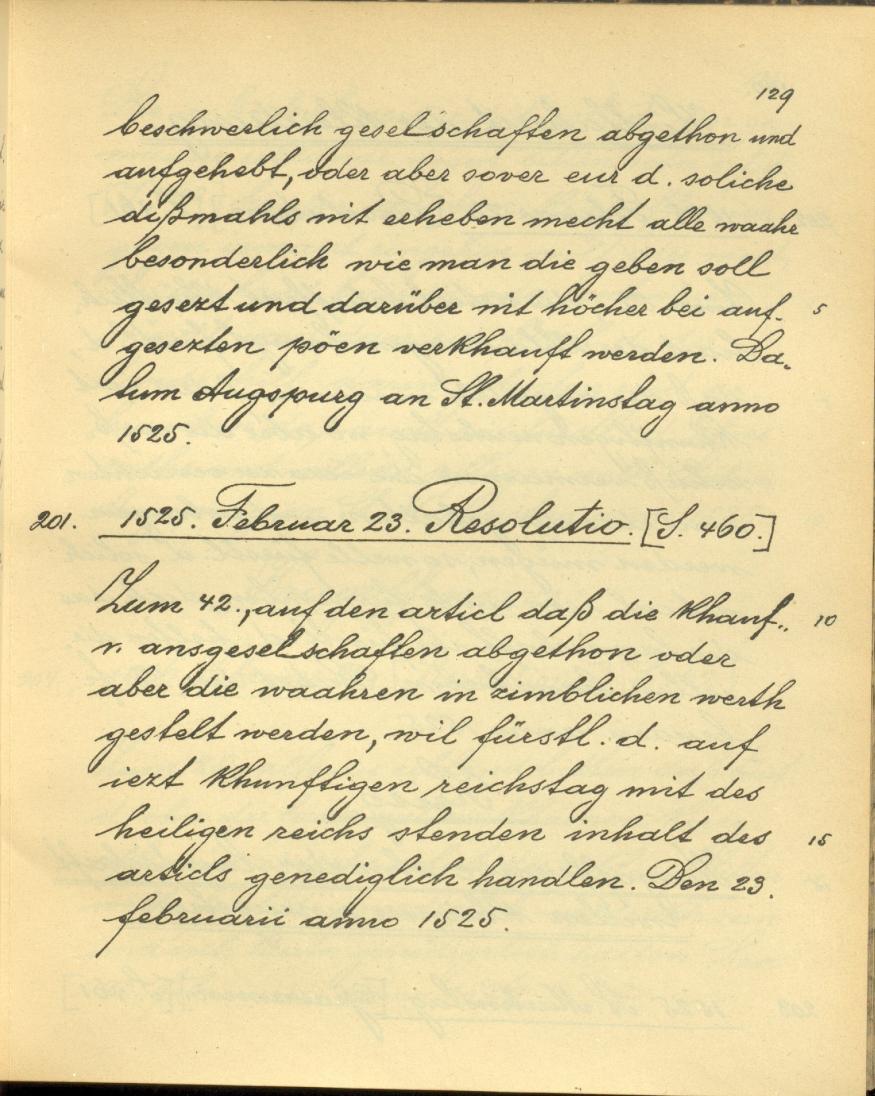 129
beschwerlich geselschaften abgethon und
aufgehebt, oder aber sover eur d. soliche
dißmahls nit erheben mecht alle waahr
besonderlich wie man die geben soll
gesezt und darüber nit höcher bei auf- 5
gesezten pöen verkhauft werden. Da-
tum Augspurg an St. Martinstag anno
1525.
201. 1525. Februar 23. Resolutio. [S. 460.]
Zum 42., auf den articl daß die khauf- 10
r. ansgeselschaften abgethon oder
aber die waahren in zimblichen werth
gestelt werden, wil fürstl. d. auf
iezt khunftigen reichstag mit des
heiligen reichs stenden inhalt des 15
articls genediglich handlen. Den 23.
februarii anno 1525.